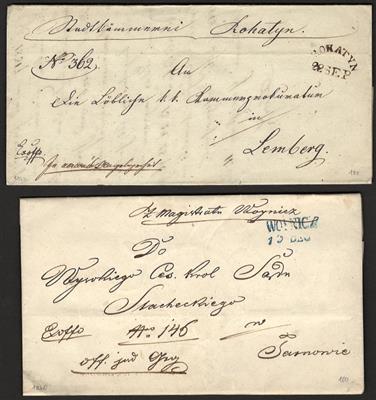 Stadtkämmerei Rohatyn.
ROHATYN
22 SEP.
No 362
An
Die Löbliche k.k. Kammerprokuratur
in
Lemberg.
Exoffo
Z Magistratu Woynicz
WOINICZ
15 DEC
Do
Wysokiego Ces. Krol Sadu
Szlacheckiego
Exoffo Nro 146 w
off. jud
Tarnowie